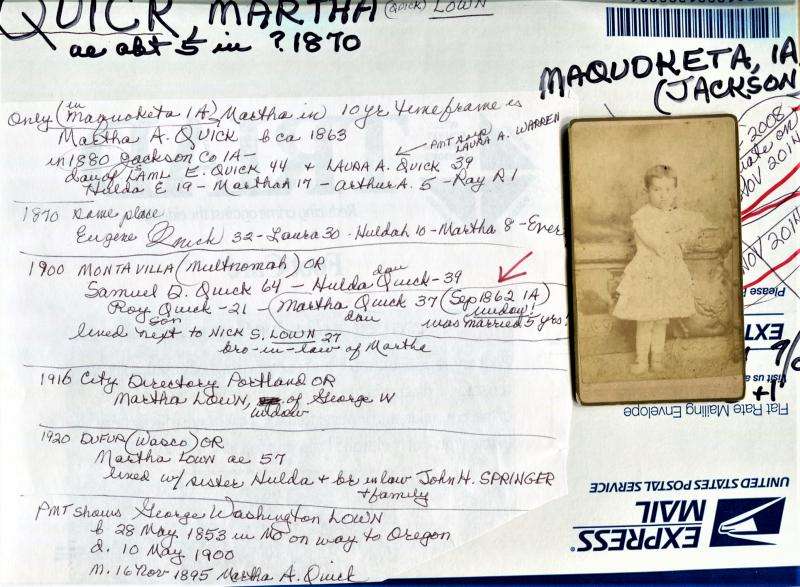 QUICK MARTHA (QUICK) LOWN
ae abt 5 in ? 1870
MAQUOKETA, IA
(JACKSON
Only (in Maquoketa IA) Martha in 10 yr timeframe is
Martha A. QUICK b ca 1863
PMT
LAURA A. WARREN
in 1880 Jackson Co IA-
dau of SAML E. QUICK 44 + LAURA A. QUICK 39
Hulda E 19 - Martha A 17 - Arthur A. 5 - Ray R 1
1870 same place
Eugene Quick 32 - Laura 30 - Huldah 10 - Martha 8 -
1900 MONTAVILLA (Multnomah) OR
Samuel D. Quick 64 - Hulda dau Quick - 39
Roy Quick - 21 - Martha Quick 37 (Sep 1862 IA)
son
dau
widow!
was married 5 yrs!
lived next to NICK S. LOWN 27
bro-in-law of Martha
1916 City Directory Portland OR
Martha LOWN, of George W
widow
1920 DUFUR (Wasco) OR
Martha LOWN ae 57
lived w/ sister Hulda + br in law John H. SPRINGER
+ family
PMT shows George Washington LOWN
b 28 May 1853 in MO on way to Oregon
d. 10 May 1900
m. 16 Nov 1895 Martha A. Quick
2008
NOV 2014
NOV 2014
Please
EXT
Visit us a
+1
Flat Rate Mailing Envelope
UNITED STATES POSTAL SERVICE
EXPRESS
MAIL